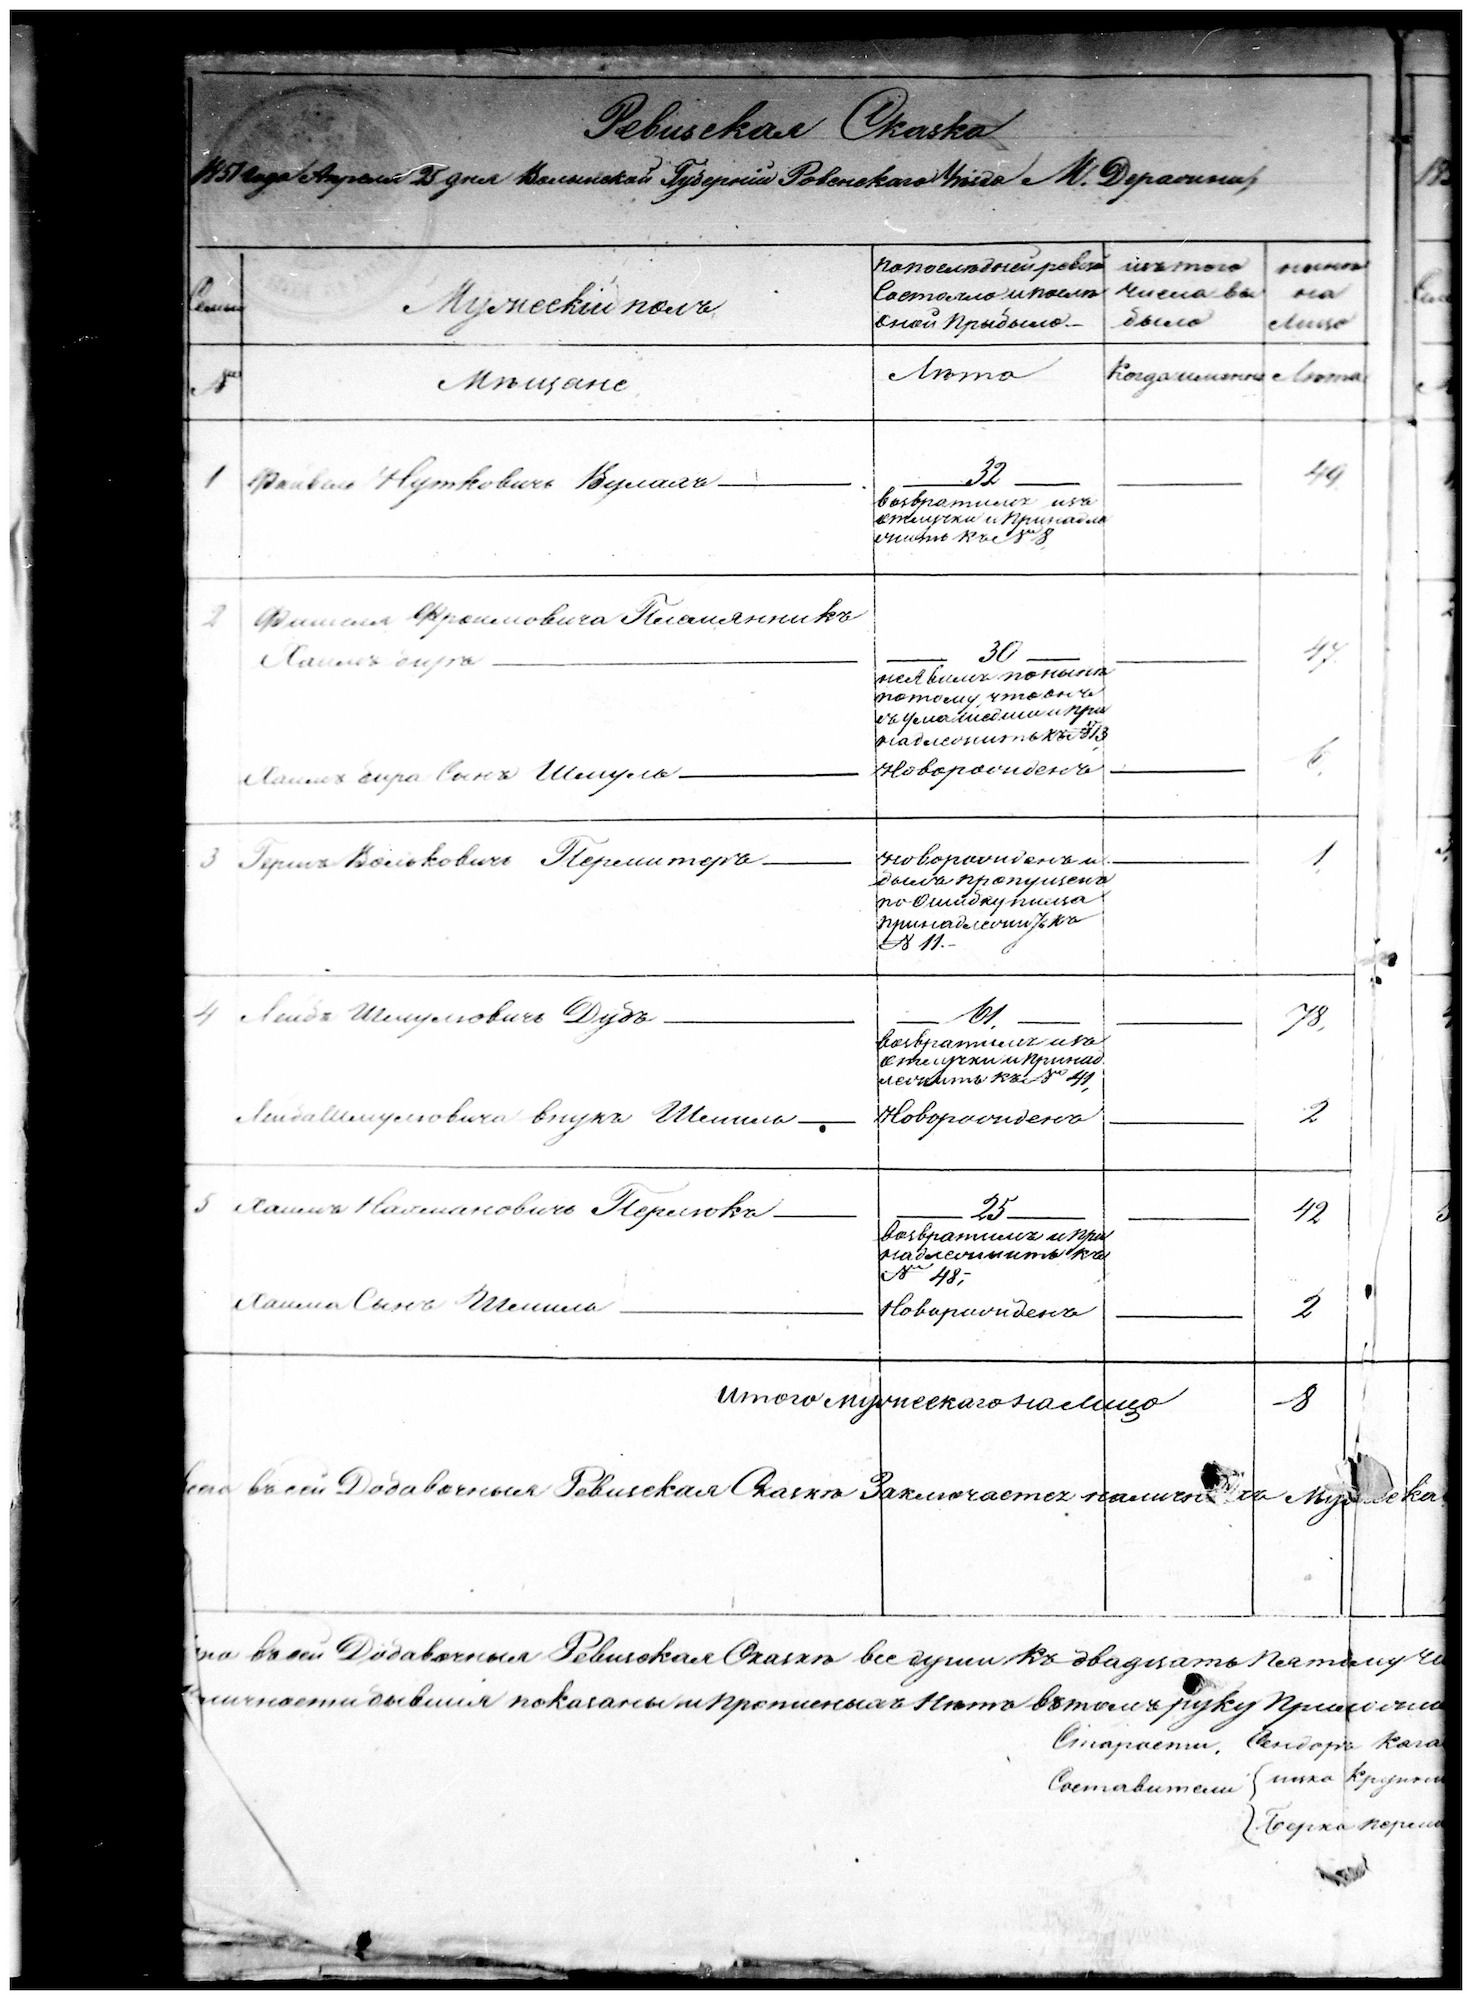 Ревизская Сказка
1851 года Апреля 25 дня Волынской Губернии Ровенскаго Уѣзда М. Деражни
Семьи
Мужескій полъ
По последней ревизіи
Состояло и послѣ
оной прыбыло
изъ того
числа вы
было
нынѣ
на
Лицо
№
Мѣщане
Лѣта
Когда именно
Лѣта
1 Файвель Нутковичъ Кулакъ 32 49
возвратился изъ
отлучки и принадле
житъ къ № 8
2 Фишеля Фроимовича Племянникъ
Хаимъ 30 47
не явился понынѣ
потому что онъ
съумашедши и при
надлежитъ къ № 13
Сынъ Шмуль Новорожденъ 6
3 Гершъ Вольковичъ Пермитеръ Новорожденъ и 1
былъ пропущенъ
по ошибку писца
принадлежитъ къ
№ 11.-
4 Лейба Шмулювичъ Дубъ 61 78
возвратился изъ
отлучки и принад
лежитъ къ № 41
Лейба Шмулювича внукъ Шмиль Новорожденъ 2
5 Хаимъ Нахмановичъ Перлюкъ 25 42
возвратился и при
надлежитъ къ
№ 48,-
Хаима Сынъ Шмиль Новорожденъ 2
Итого мужескаго на Лицо 8
въ сей Додавочныя Ревизская Сказкѣ Заключается
въ сей Додавочныя Ревизская Сказкѣ все души къ двадцать пятому
бывшія показаны и прописныхъ нѣтъ въ томъ руку
Старости, Сендоръ
Составители
Берко